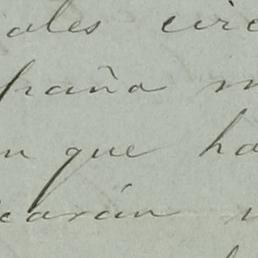 ales circ
spaña m
n que ha
icarán